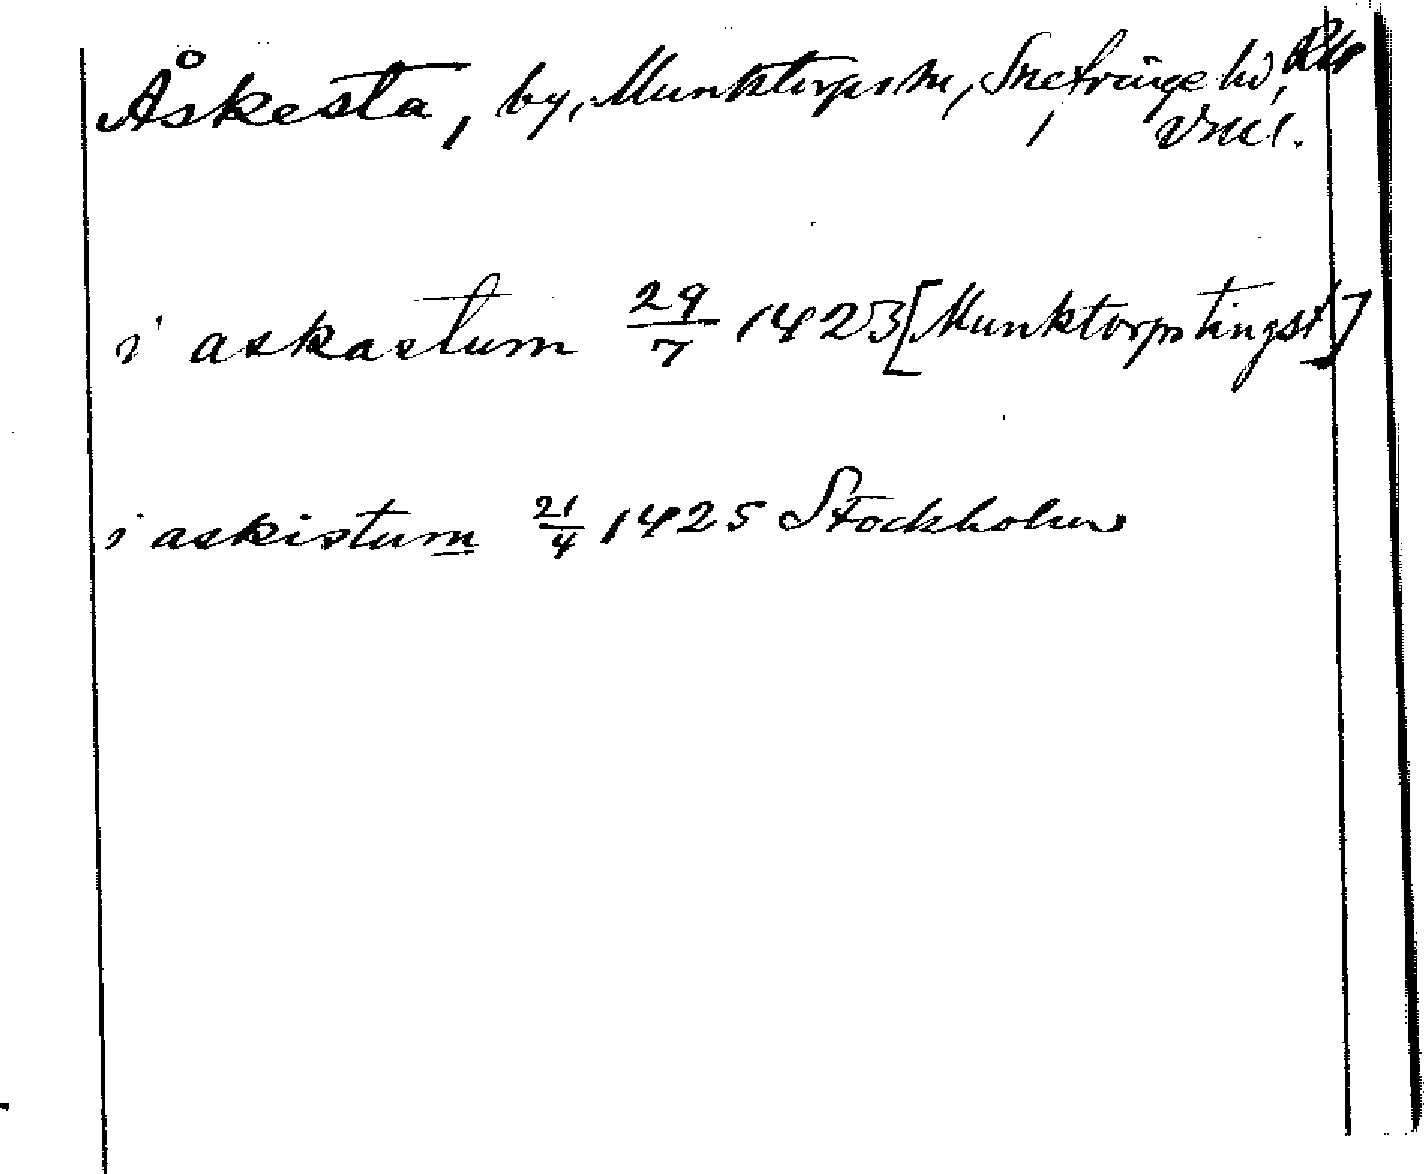 Åskesta, by, Munktorps sn, Snefringe hd,
Vsml.
i askastum 29/7 1423 [Munktorps tingst]
i askistum 21/4 1425 Stockholm